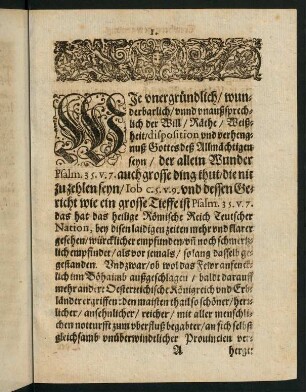 1.
WIe vnergründlich/ wun-
derbarlich/ vnnd vnaußsprech-
lich der Will/ Räthe/ Weiß-
heit/ disposition vnd verheng-
nuß Gottes deß Allmächtigen
seyn/ der allein Wunder
Psalm. 35. v. 7. auch grosse ding thut/ die nit
zu zehlen seyn/ Iob c. 5. v. 9. vnd dessen Ge-
richt wie ein grosse Tieffe ist Psalm. 35. v. 7.
das hat das heilige Römische Reich Teutscher
Nation, bey disen laidigen zeiten mehr vnd klarer
gesehen/ würcklicher empfunden/ vñ noch schmertz-
lich empfinder/ als vor jemals/ so lang dasselb ge-
gestanden. Vnd zwar/ ob wol das Fewr anfenck-
lich inn Böhaimb außgeschlagen/ baldt darauff
mehr andere Oesterreichische Königreich vnd Erb-
länder ergriffen: den maisten thail so schöner/ herr-
licher/ ansehnlicher/ reicher/ mit aller menschli-
chen notturfft zum vberfluß begabter/ an sich selbst
gleichsamb vnüberwindtlicher Provincien ver-
A herge-